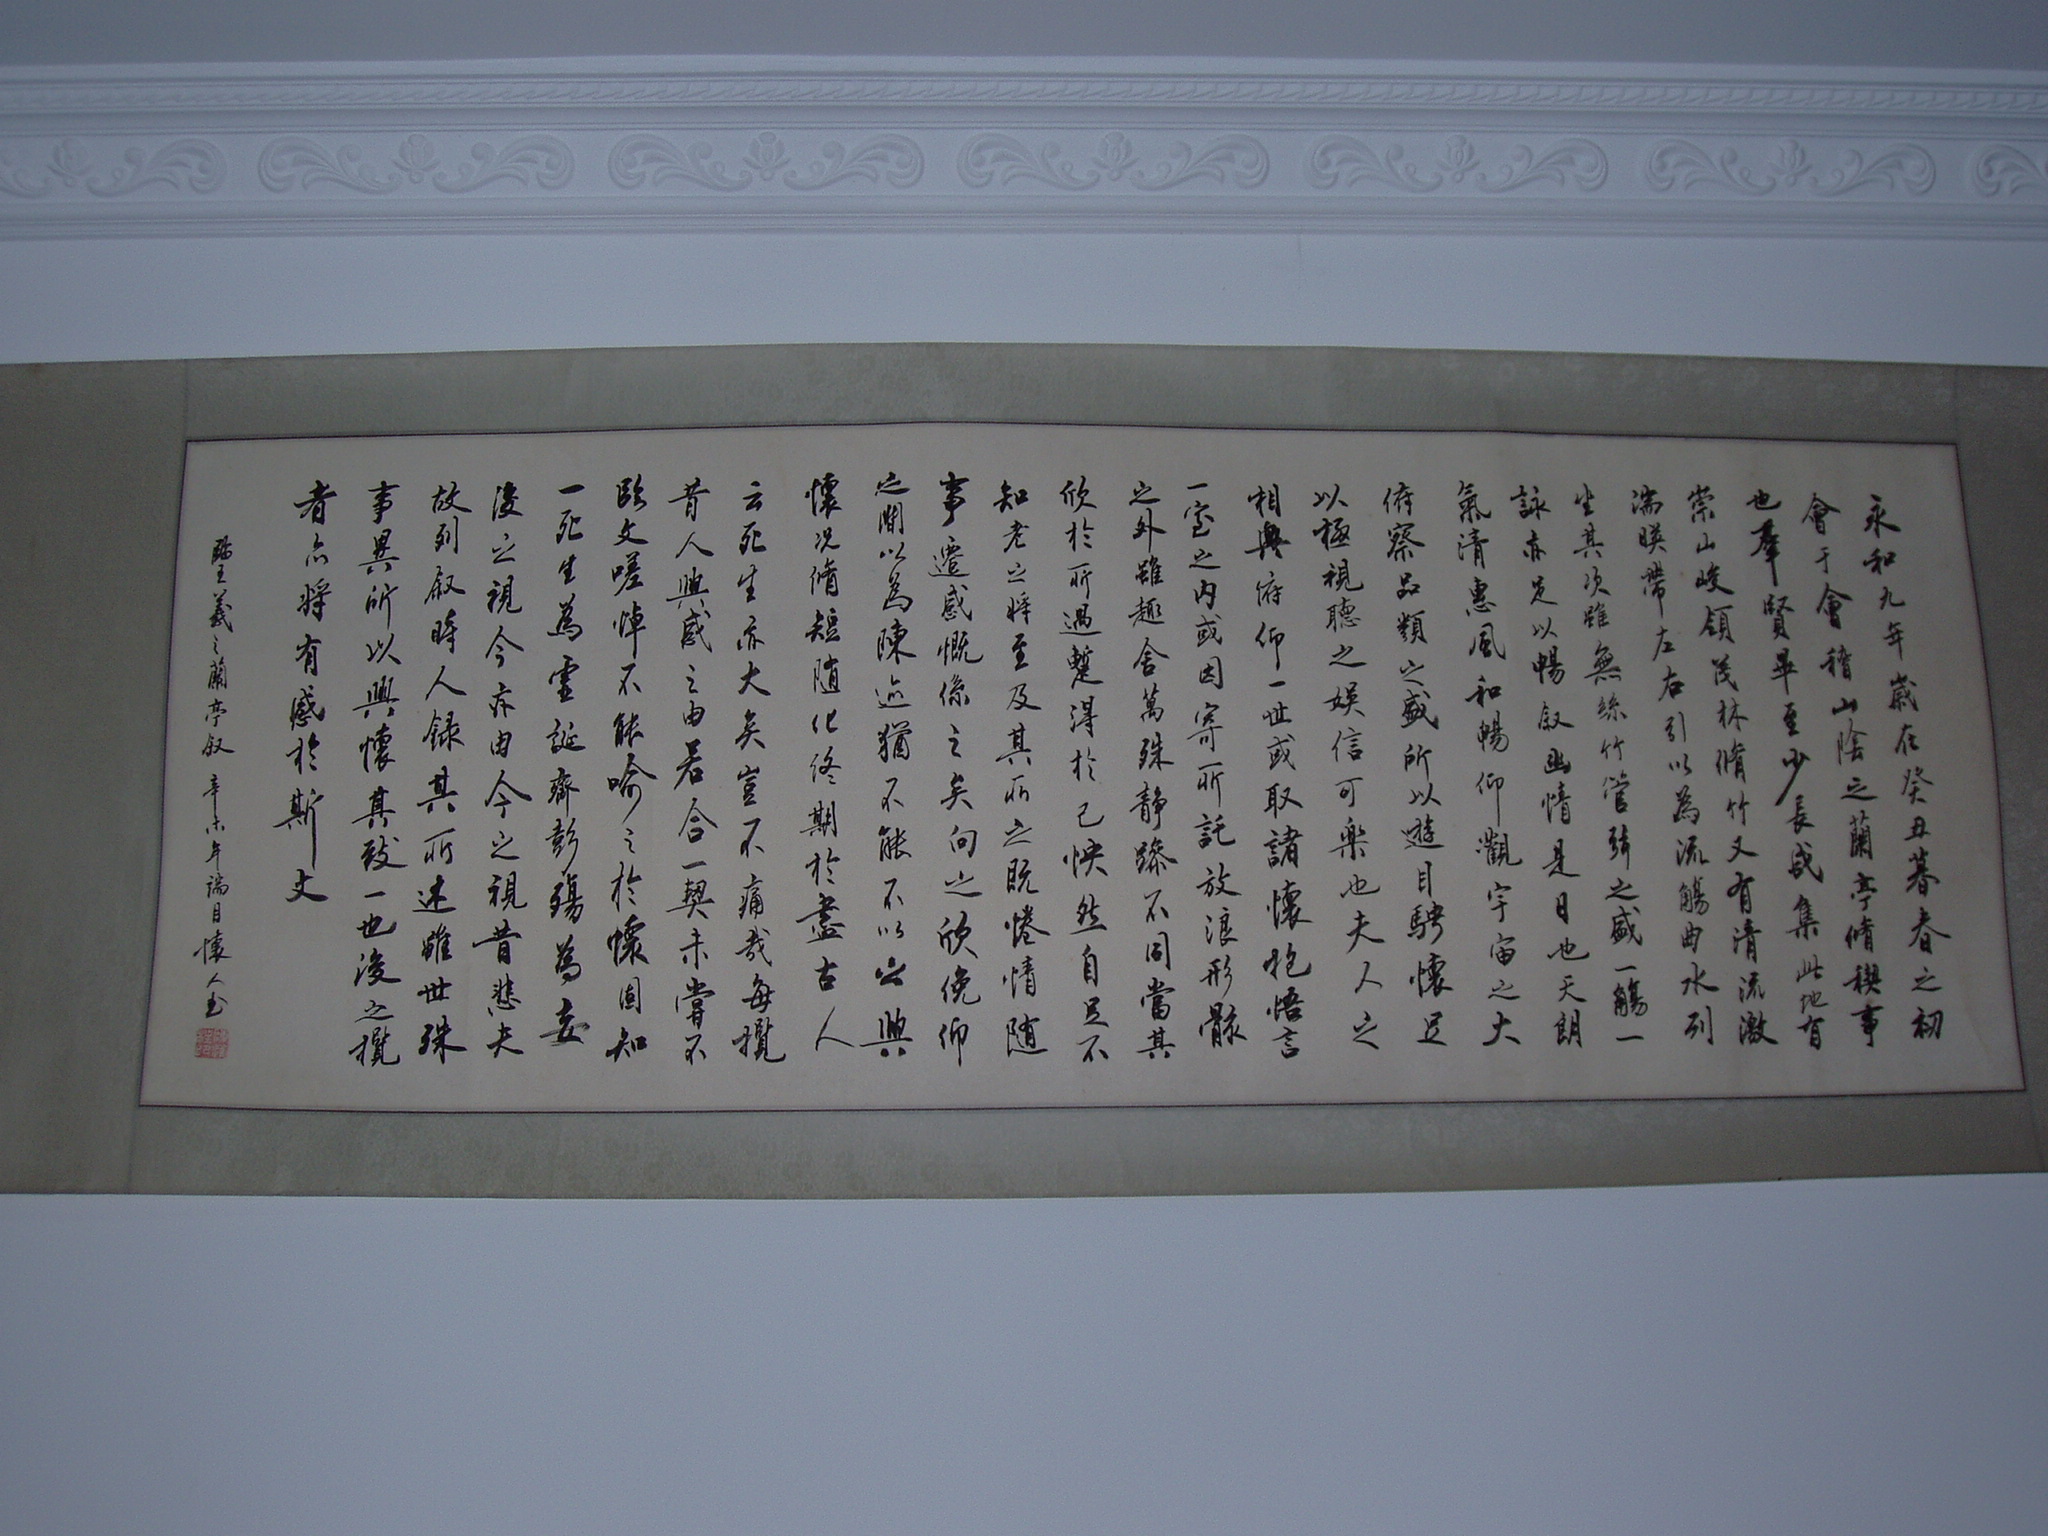 永和九年歲在癸丑暮春之初
會于會稽山陰之蘭亭脩禊事
也羣賢畢至少長咸集此地有
崇山峻領茂林脩竹又有清流激
湍暎帶左右引以為流觴曲水列
坐其次雖無絲竹管絃之盛一觴一
詠亦足以暢叙幽情是日也天朗
氣清惠風和暢仰觀宇宙之大
俯察品類之盛所以遊目騁懷足
以極視聽之娱信可樂也夫人之
相與俯仰一世或取諸懷抱悟言
一室之内或因寄所託放浪形骸
之外雖趣舍萬殊静躁不同當其
欣於所遇蹔得於己怏然自足不
知老之將至及其所之既惓情随
事遷感慨係之矣向之欣俛仰
之閒以為陳迹猶不能不以之興
懷况脩短随化终期於盡古人
云死生亦大矣豈不痛哉每攬
昔人興感之由若合一契未嘗不
臨文嗟悼不能喻之於懷固知
一死生為虚誕齊彭殤為妄
後之視今亦由今之視昔悲夫
故列叙時人録其所述雖世殊
事異所以興懷其致一也後之攬
者亦将有感於斯文
臨王羲之蘭亭叙 辛未年端月懷人书